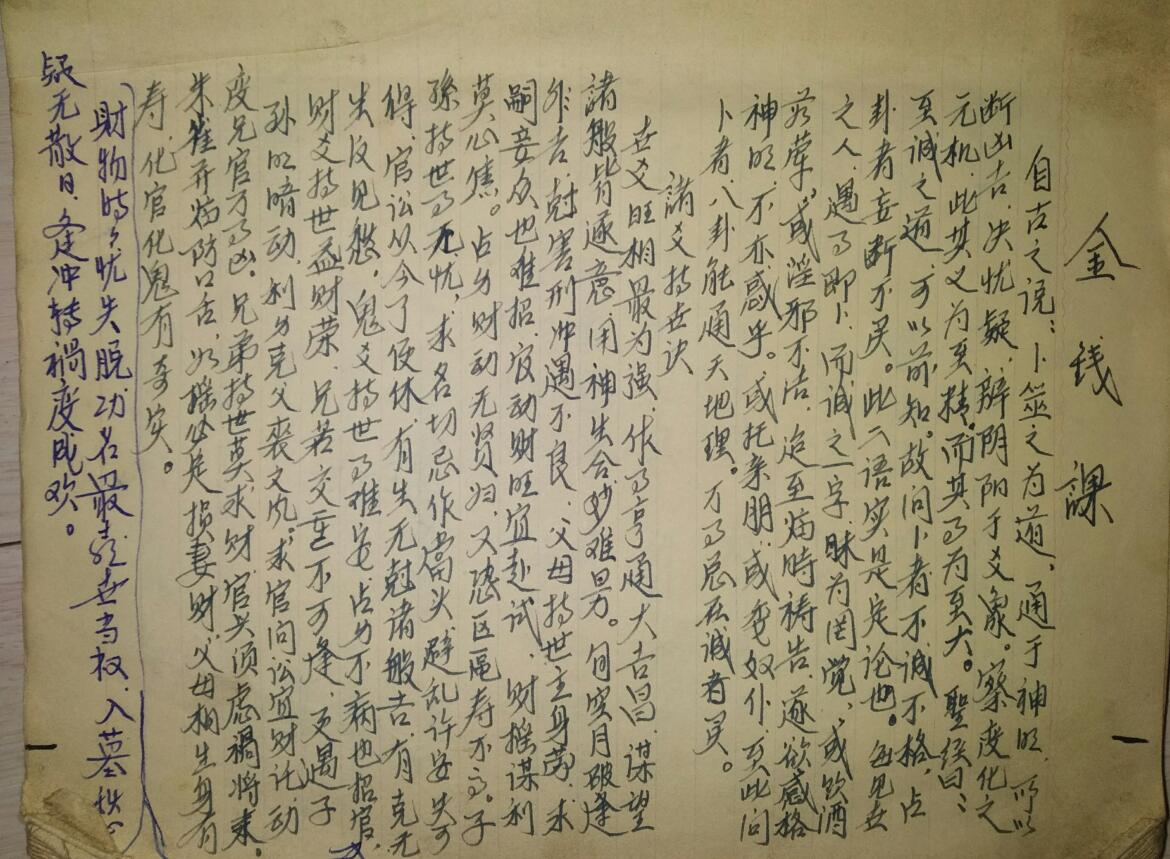 金钱課
自古之说：卜筮之为道，通于神明，所以
断凶吉，决忧疑，辨阴阳于爻象。察变化之
元机，此其义为至精，而其为至大。聖经曰：
至诚之道，可以前知。故问卜者不诚不格，占
卦者妄断不灵。此二语实是定论也。每见世
之人，遇即卜，而诚之一字，昧为罔觉，或饮酒
茹荤，或淫邪不洁，迨至临時祷告，遂欲感格
神明，不亦惑乎。或托亲朋，或委奴仆，至此问
卜者，八卦能通天地理。万总在诚者灵。
諸爻持世诀
世爻旺相最为强，作亨通大吉昌，谋望
諸般皆遂意，用神生合妙难量。旬空月破逢
非吉，尅害刑冲遇不良，父母持世主身劳，求
嗣妾众也难招，官动财旺宜赴试，财摇谋利
莫心焦。占身财动无贤妇，又恐区寿不高。子
孫持世无忧，求名切忌作當头，避乱许安失可
得，官讼从今了便休，有生无尅諸般吉，有克无
生反见愁，鬼爻持世难安，占身不病也招官，
财爻持世益财荣，兄若交重不可逢，更遇子
孙明暗动，利身克父丧文风。求官问讼宜财托，动
变兄官万凶。兄弟持世莫求财，官兴须虑禍将来，
朱雀并临防口舌，如摇必是损妻财，父母相生身有
寿，化官化鬼有奇实。
財物時忧失脱，功名最喜世当权，入墓
疑无散日，逢冲转禍变成欢。